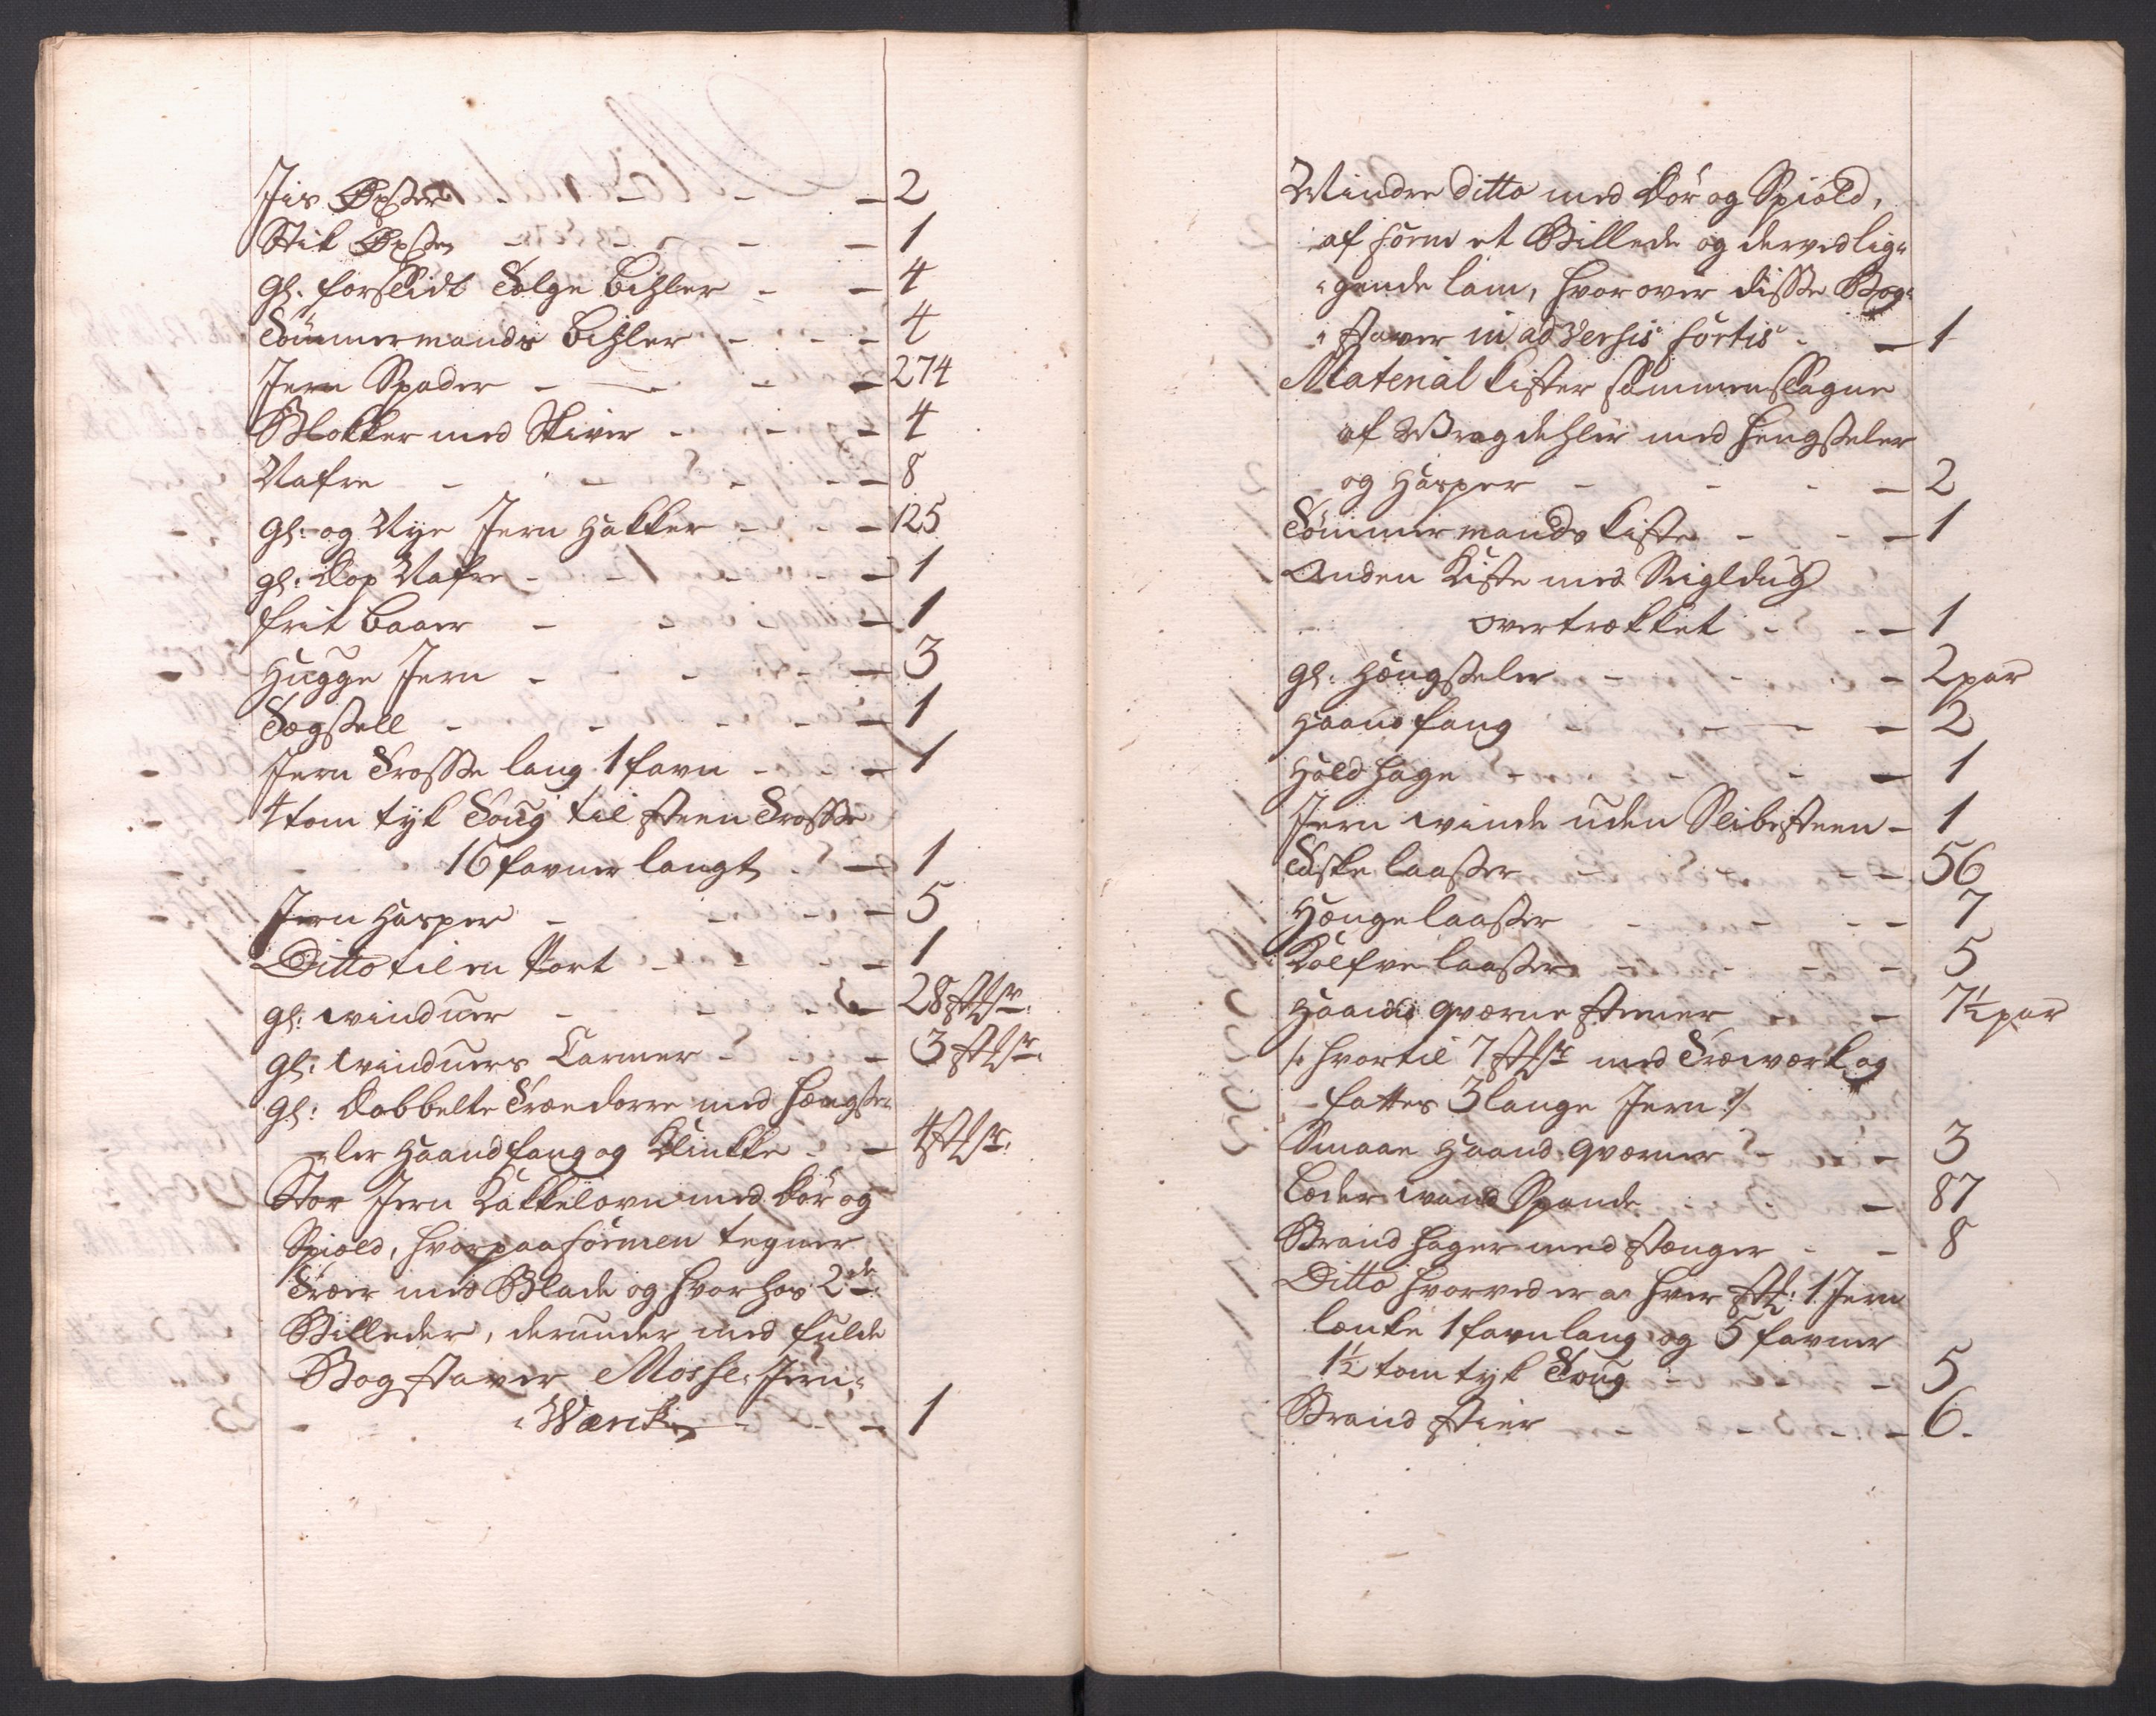 Jis Øxser - - - 2
Stik Øxse - - - 1
gl. forslidt Følge bihler - - 4
Tömmermands bihler - - - 4
Jern Spader - - - 274
Blokker med Skiver - - - 4
Nafre - - - 8
gl: og Nye Jern Hakker - - - 125
gl: Dop Nafre - - - 1
frit baaer - - - 1
Hugge Jern - - - 3
Sogstell - - - 1
Jern Trosse lang 1 favn - - - 1
4 tom tyk Toug til steen Trosse
16 favner langt - - 1
Jern Hasper - - - 5
Ditto til en Port - - - 1
gl: winduer - - - 28 stkr:
gl: winduers Carmer - - - 3 stkr:
gl: Dobbelte Træedorre med Hængse-
-ler Haandfang og Klinkke - - 4 stkr:
Stor Jern Kakkelovn med Dör og
Spiold, hvorpaa formen tegner
Træer med Blade og hvorhos 2de
Billeder, derunder med fulde
Bogstaver Mosse-Jern-
-Wærck - - - 1
Mindre ditto med Dör og Spiold,
af form et Billede og derved lig-
-gende lam, hvorover disse Bog-
-staver in adversis fortis - - 1
Material Kister sammenslagne
af Wragdehler med hengseler
og Hasper - - - 2
Tömmermands Kiste - - - 1
Anden Kiste med Seigldug
overtrækket - - 1
gl. Hængseler - - - 2 par
Haandfang - - - 2
Hold hage - - - 1
Jern winde uden Slibesteen - 1
Laaser - - - 56
Hængelaaser - - - 7
Kolfve laaser - - - 5
Haand qværne steener - - 7½ par
/: hvortil 7 stkr med Træwærk og
fattes 3 lange Jern :/
Smaae Haand qværner - - - 3
Læder wand Spande - - - 87
Brand hager med stænger - - 8
Ditto hvorved er a hver stk: 1 Jern
lænke 1 favn lang og 5 favner
1½ tom tyk Toug - - - 5
Brand stier - - - 6.